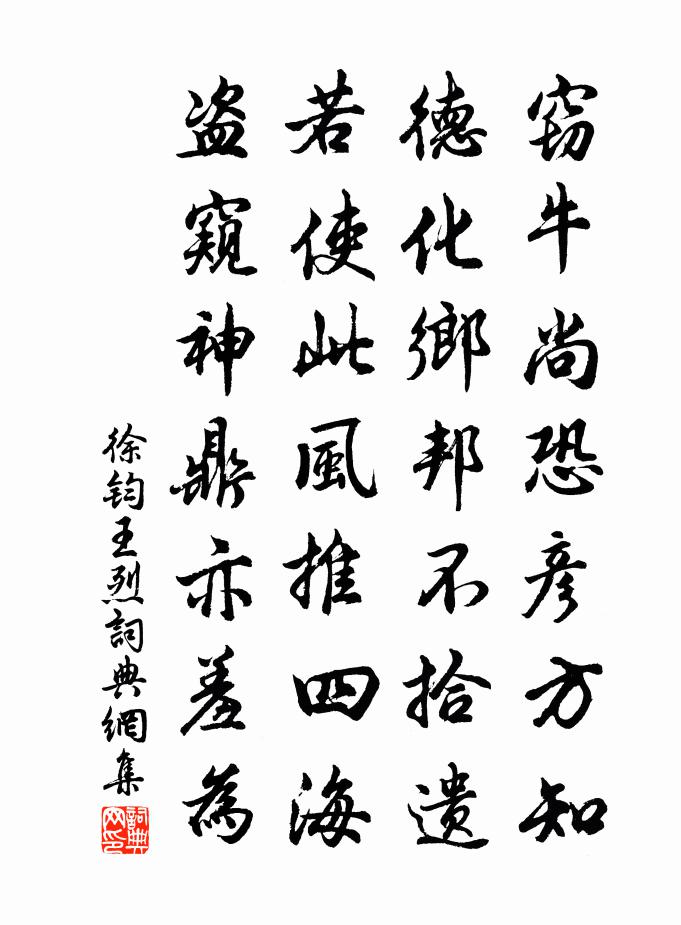 窃牛尚恐彦方知
德化鄉邦不拾遗
若使此風推四海
盗窺神鼎亦羞為
徐鈞王烈詞典網集
詞典网印